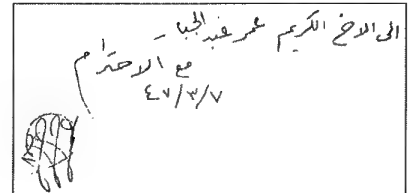 الى الاخ الكريم عمر عبد الجبار
مع الاحترام
٤٧/٣/٧